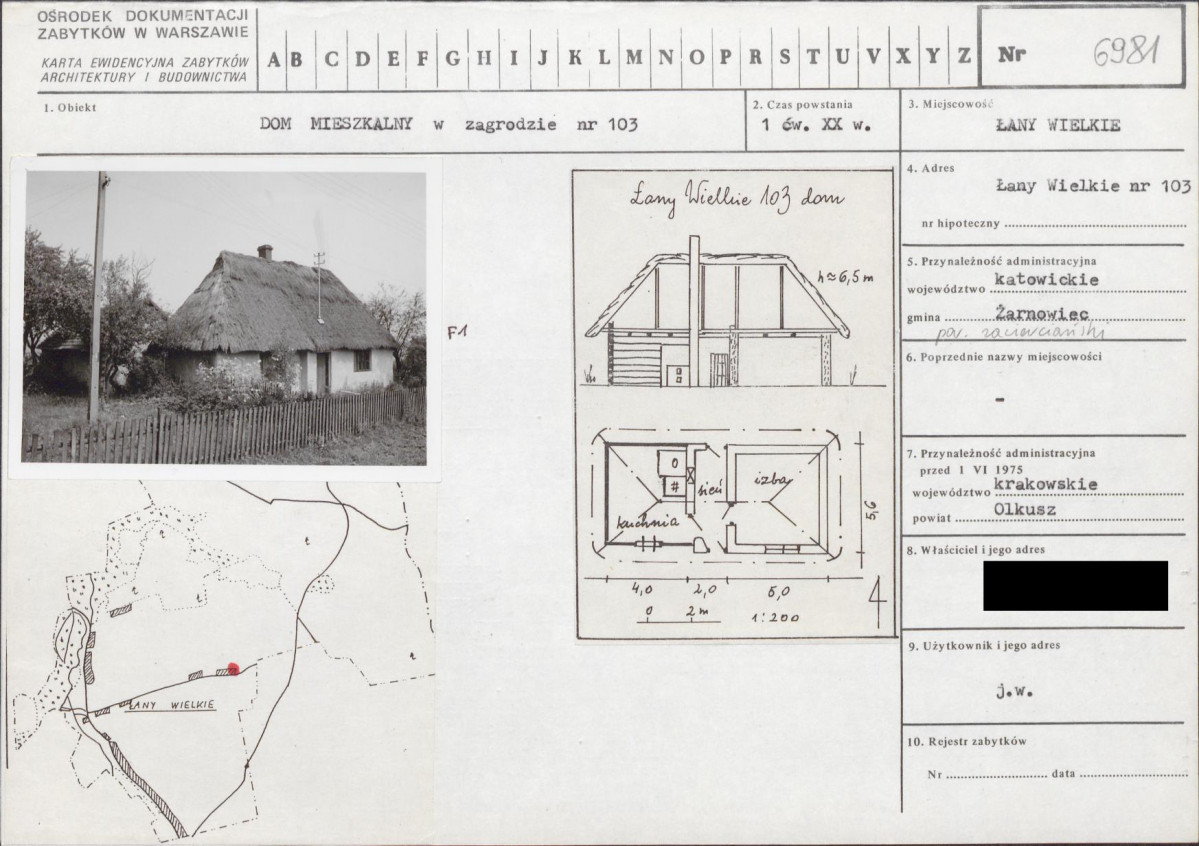 OŚRODEK DOKUMENTACJI
ZABYTKÓW W WARSZAWIE
KARTA EWIDENCYJNA ZABYTKÓW
ARCHITEKTURY I BUDOWNICTWA
A B C D E F G H I J K L M N O P R S T U V X Y Z
Nr 6981
1. Obiekt
DOM MIESZKALNY w zagrodzie nr 103
2. Czas powstania
1 ćw. XX w.
3. Miejscowość
ŁANY WIELKIE
4. Adres
Łany Wielkie nr 103
nr hipoteczny
5. Przynależność administracyjna
województwo katowickie
gmina Żarnowiec
pow. zawierciański
6. Poprzednie nazwy miejscowości
-
7. Przynależność administracyjna
przed 1 VI 1975
województwo krakowskie
powiat Olkusz
8. Właściciel i jego adres
9. Użytkownik i jego adres
j.w.
10. Rejestr zabytków
Nr data
F1
Łany Wielkie 103 dom
h≈6,5 m
sień
izba
kuchnia
5,6
4,0 2,0 5,0
0 2 m
1:200
ŁANY WIELKIE